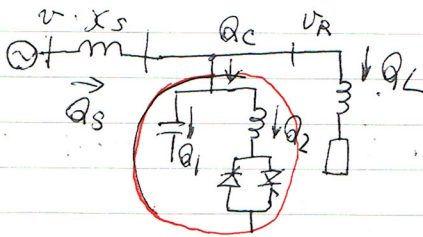 v Xs Qc VR
Qs QL
Q1 Q2